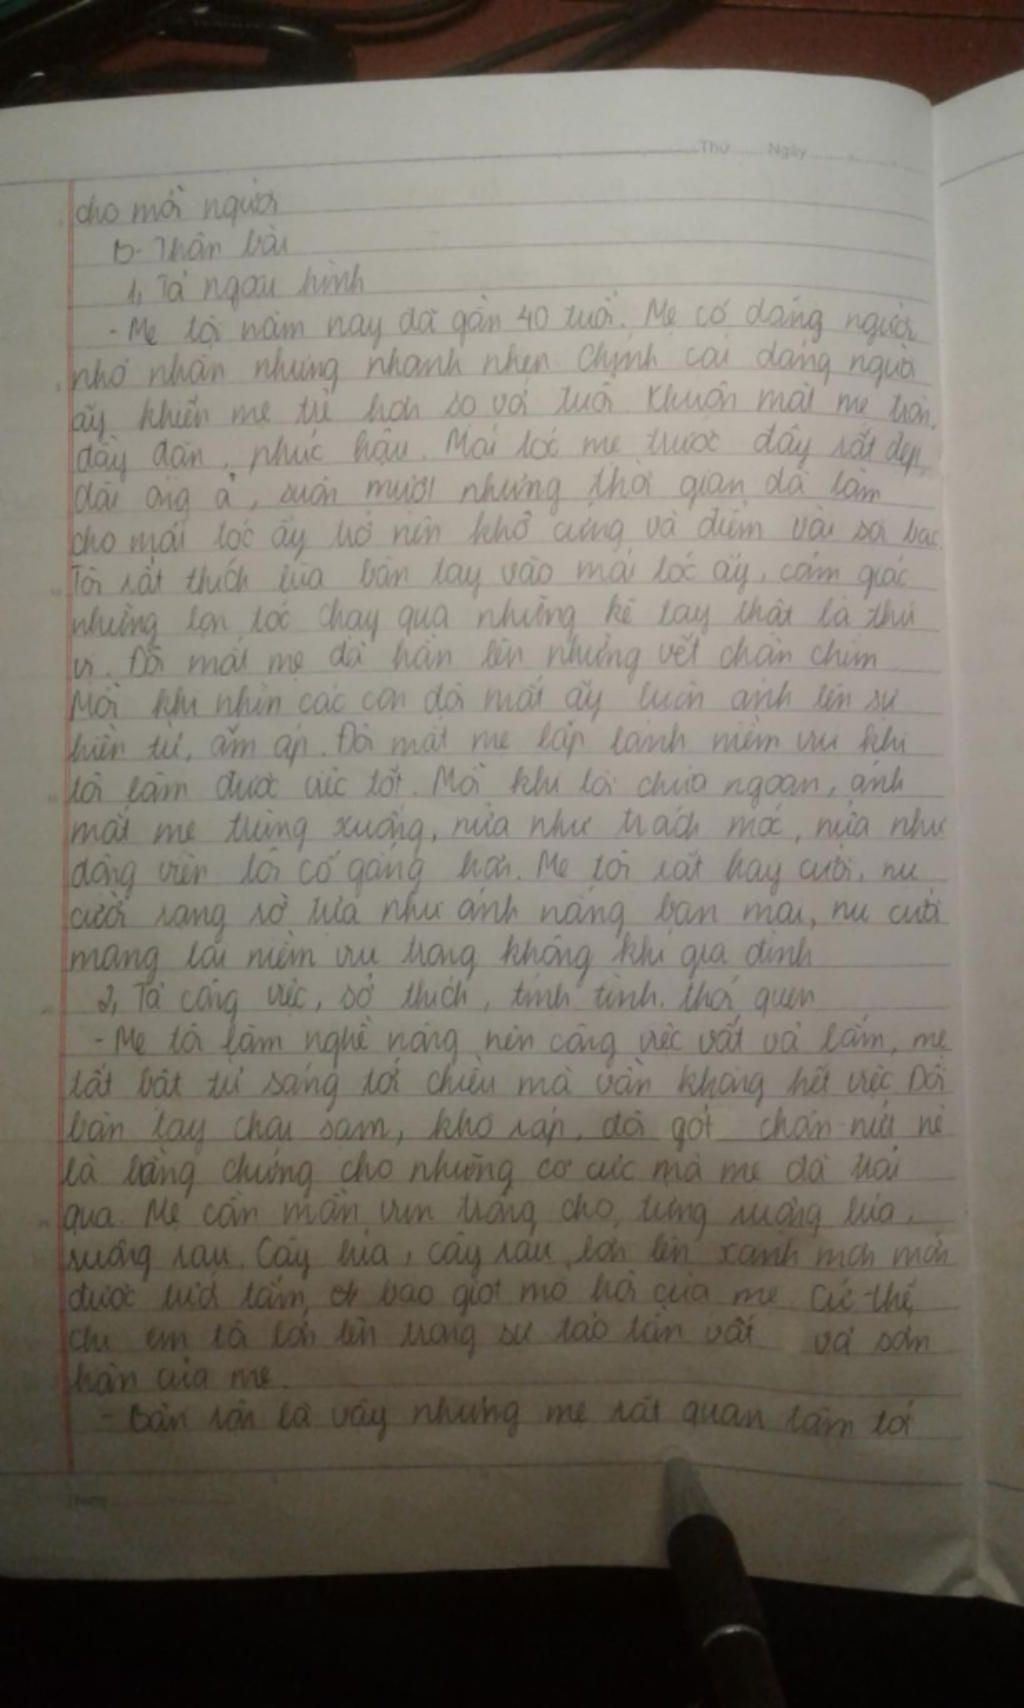 Thứ Ngày
cho mọi người
b- Thân bài
1, Tả ngoại hình
- Mẹ tôi năm nay đã gần 40 tuổi. Mẹ có dáng người
nhỏ nhắn nhưng nhanh nhẹn. Chính cái dáng người
ấy khiến mẹ trẻ hơn so với tuổi. Khuôn mặt mẹ tròn,
đầy đặn, phúc hậu. Mái tóc mẹ trước đây rất đẹp,
dài óng ả, suôn mượt nhưng thời gian đã làm
cho mái tóc ấy trở nên khô cứng và điểm vài sợi bạc.
Tôi rất thích lùa bàn tay vào mái tóc ấy, cảm giác
những lọn tóc chạy qua những kẽ tay thật là thú
vị. Đôi mắt mẹ đã hằn lên những vết chân chim
Mỗi khi nhìn các con đôi mắt ấy luôn ánh lên sự
hiền từ, ấm áp. Đôi mắt mẹ lấp lánh niềm vui khi
tôi làm được việc tốt. Mỗi khi tôi chưa ngoan, ánh
mắt mẹ trùng xuống, nửa như trách móc, nửa như
động viên tôi cố gắng hơn. Mẹ tôi rất hay cười, nụ
cười rạng rỡ tựa như ánh nắng ban mai, nụ cười
mang lại niềm vui trong không khí gia đình
2, Tả công việc, sở thích, tính tình, thói quen
- Mẹ tôi làm nghề nông nên công việc vất vả lắm, mẹ
tất bật từ sáng tới chiều mà vẫn không hết việc. Đôi
bàn tay chai sạm, khô ráp, đôi gót chân nứt nẻ
là bằng chứng cho những cơ cực mà mẹ đã trải
qua. Mẹ cần mẫn vun trồng cho từng ruộng lúa,
ruộng rau. Cây lúa, cây rau lớn lên xanh mơn mởn
được tưới tắm bao giọt mồ hôi của mẹ. Cứ thế,
chị em tôi lớn lên trong sự tảo tần vất vả sớm
hôm của mẹ.
- Bận rộn là vậy nhưng mẹ rất quan tâm tới